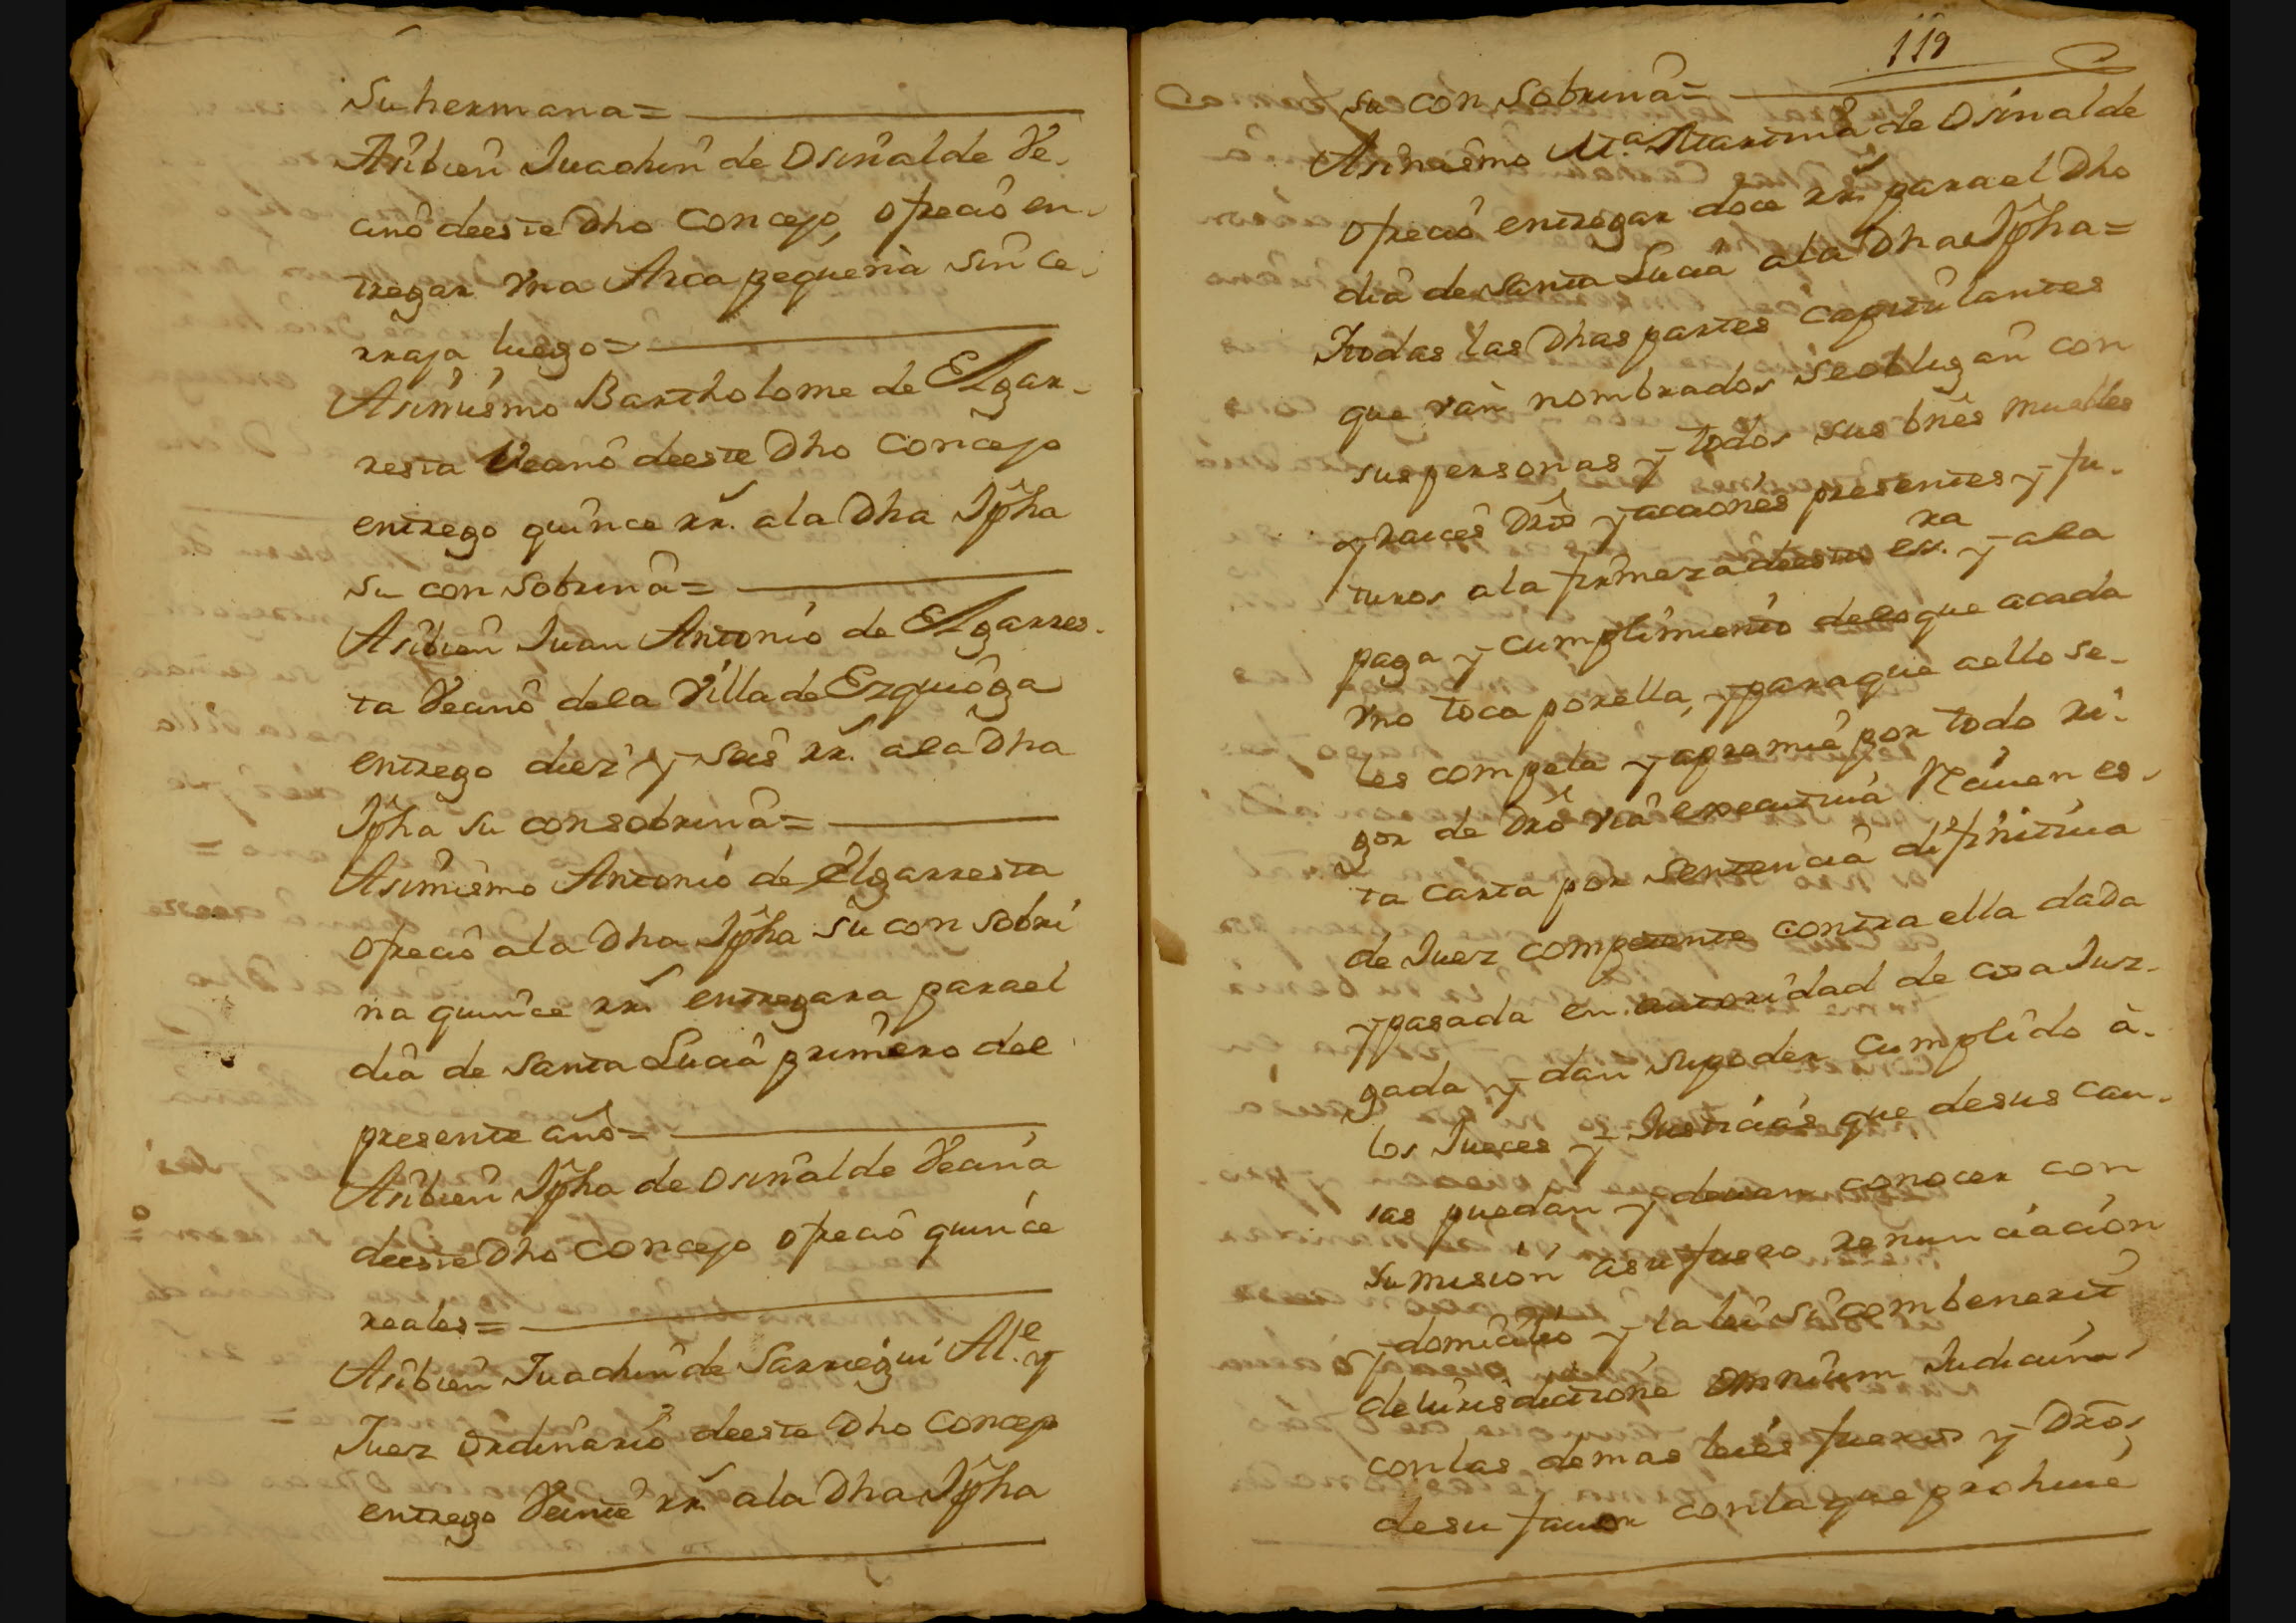 Su hermana=
Asibien Juachin de Osinalde Ve-
cino deeste Dho Concejo, ofrecio en-
tregar vna Arca pequeña sin ce-
rraja luego=
Asimismo Bartholome de Elgar-
resta Vecino deeste Dho Concejo
entrego quince rr.̃ ala Dha Jp̃ha
su con sobrina=
Asibien Juan Antonio de Elgarres-
ta Vecino dela Villa de Ezquioga
entrego diez y seis rr.̃ ala Dha
Jp̃ha su consobrina=
Asimismo Antonio de Elgarresta
ofrecio ala Dha Jp̃ha su con sobri
na quince rr.̃ entregara parael
dia de Santa Lucia primero del
presente año=
Asibien Jp̃ha de Osinalde Vecina
deeste Dho Concejo ofrecio quince
reales=
Asibien Juachin de Sarriegui Al.e y
Juez ordinario deeste Dho Concejo
entrego Veinte rr.̃ ala Dha Jp̃ha
119
su con sobrina=
Asimismo M.a Martina de Osinalde
ofrecio entregar doce rr.̃ parael Dho
dia de Santa Lucia ala Dha Jp̃ha=
Ytodas las Dhas partes capitulantes
que van nombrados seobligan con
suspersonas y todos sus bnes muebles
y raices Dr̃os y acciones presentes y fu-
turos ala firmeza deesta es.ra y ala
paga y cumplimiento deloque acada
vno toca porella, yparaque aello se-
les compela y apremie por todo ri-
gor de Dr̃o via executiva Reciven es-
ta carta por sentencia difinitiva
de Juez competente contra ella dada
ypasada en autoridad de cosa Juz-
gada y dan supoder cumplido à-
los Jueces y Justicias que desus cau-
sas puedan y devan conocer con
sumision asu fuero renunciacion
y domicilio y la lei si combenerit
deiurisdictione omnium Judicum
conlas demas leies fueros y Dr̃os
desu favor conla que prohive